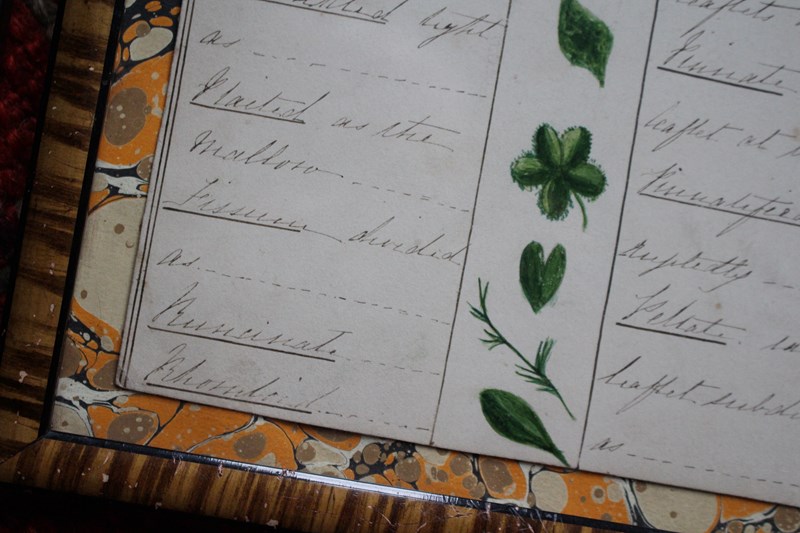 light
as
Plaited as the
Mallow
Fission divided
as
Runcinate
Rhomboid
leaflets
Pinnate
leaflet at
Pinnatifid
Peltate
leaflet subd
as